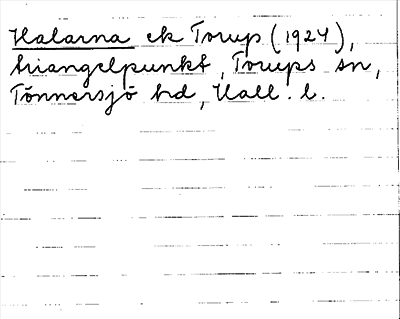 Halarna ek Torup (1924),
triangelpunkt, Torups sn,
Tönnersjö hd, Hall. l.